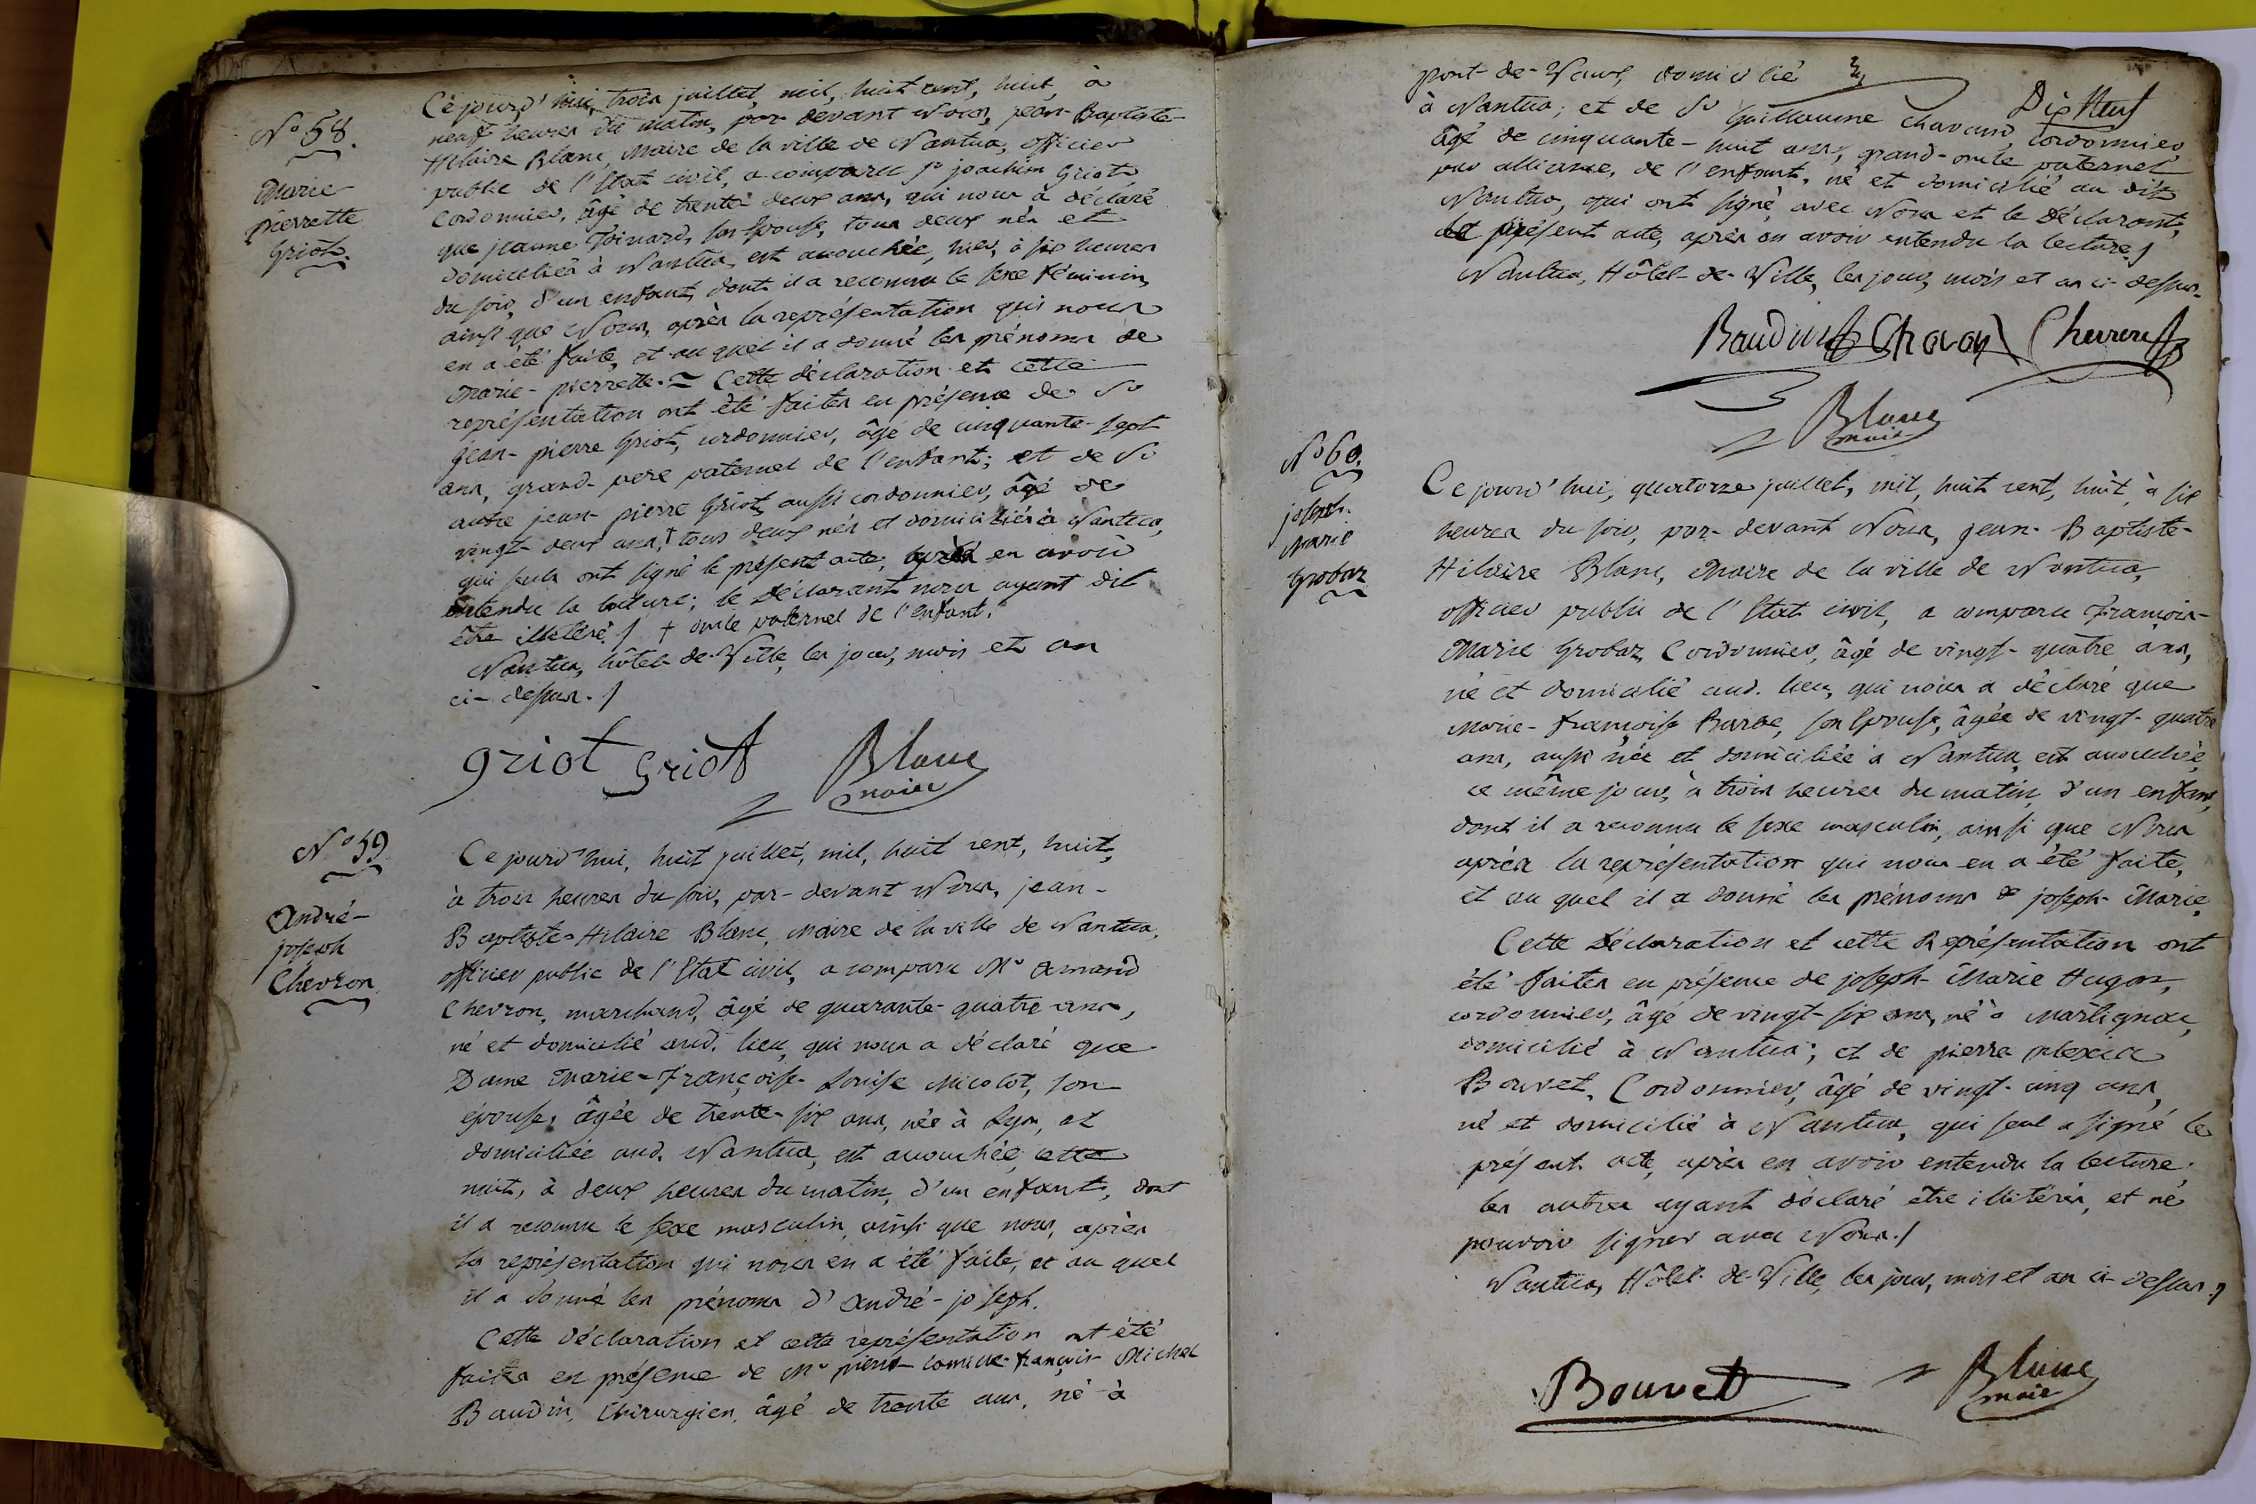 N.° 58.
Marie
pierrette
Griot.
Ce jourd'hui, trois juillet, mil, huit cent, huit, à
neuf heures du matin, par devant Nous, jean-Baptiste-
Hilaire Blanc, Maire de la ville de Nantua, officier
public de l'Etat civil, a comparu Sr joachim Griot
Cordonnier, âgé de trente deux ans, qui nous a déclaré
que jeanne Toinard, son Epouse, tous deux nés et
domiciliés à Nantua, est accouchée, hier, à six heures
du soir, d'un enfant, dont il a reconnu le sexe féminin,
ainsi que Nous, après la représentation qui nous
en a été faite, et au quel il a donné les prénoms de
Marie-pierrette. = Cette déclaration et cette
représentation ont été faites en présence de Sr
jean-pierre Griot, cordonnier, âgé de cinquante-sept
ans, grand-pere paternel de l'enfant; et de Sr
autre jean-pierre Griot, aussi cordonnier, âgé de
vingt-deux ans, † tous deux nés et domiciliés à Nantua,
qui seuls ont signé le présent acte; après en avoir
entendu la lecture; le Déclarant nous ayant dit
être illitéré./ † oncle paternel de l'enfant.
Nantua, hôtel-de-Ville, les jour, mois et an
ci-dessus./
griot griot Blanc
maire
N.° 59.
André-
joseph
Chevron.
Ce jourd'hui, huit juillet, mil, huit cent, huit,
à trois heures du soir, par-devant Nous, jean-
Baptiste-Hilaire Blanc, Maire de la ville de Nantua,
officier public de l'Etat civil, a comparu Mr Amand
Chevron, marchand, âgé de quarante-quatre ans,
né et domicilié aud. lieu, qui nous a déclaré que
Dame Marie-Françoise-Louise Nicolot, son
épouse, âgée de trente-six ans, née à Lyon, et
domiciliée aud. Nantua, est accouchée, cette
nuit, à deux heures du matin, d'un enfant, dont
il a reconnu le sexe masculin, ainsi que nous, après
la représentation qui nous en a été faite, et au quel
il a donné les prénoms d'André-joseph.
Cette déclaration et cette représentation ont été
faites en présence de Mr pierre-Camille-françois-Michel
Baudin, Chirurgien, âgé de trente ans, né à
Dix Neuf
pont-de-Vaux, domicilié
à Nantua; et de Sr Guillaume Chavand, Cordonnier
âgé de cinquante-huit ans, grand-oncle paternel
par alliance, de l'enfant, né et domicilié au dit
Nantua, qui ont signé, avec Nous et le Déclarant,
le présent acte, après en avoir entendu la lecture./
Nantua, Hôtel-de-Ville, les jour, mois et an ci-dessus.
Baudin Chavan Chevron
Blanc
maire
N.° 60.
joseph-
Marie
Grobaz
Ce jourd'hui, quatorze juillet, mil, huit cent, huit, à six
heures du soir, par-devant Nous, jean-Baptiste-
Hilaire Blanc, Maire de la ville de Nantua,
officier public de l'Etat civil, a comparu François-
Marie Grobaz, Cordonnier, âgé de vingt-quatre ans,
né et domicilié aud. lieu, qui nous a déclaré que
Marie-françoise Barbe, son Epouse, âgée de vingt-quatre
ans, aussi née et domiciliée à Nantua, est accouchée,
ce même jour, à trois heures du matin, d'un enfant,
dont il a reconnu le sexe masculin, ainsi que Nous
après la représentation qui nous en a été faite,
et au quel il a donné les prénoms de joseph-Marie.
Cette Déclaration et cette Représentation ont
été faites en présence de joseph-Marie Hugon,
cordonnier, âgé de vingt-six ans, né à Martignat,
domicilié à Nantua; et de pierre Alexis
Bouvet, Cordonnier, âgé de vingt-cinq ans,
né et domicilié à Nantua, qui seul a signé le
présent acte, après en avoir entendu la lecture.
les autres ayant déclaré être illitérés, et ne
pouvoir signer avec Nous./
Nantua, Hôtel-de-Ville, les jour, mois et an ci-dessus./
Bouvet Blanc
maire